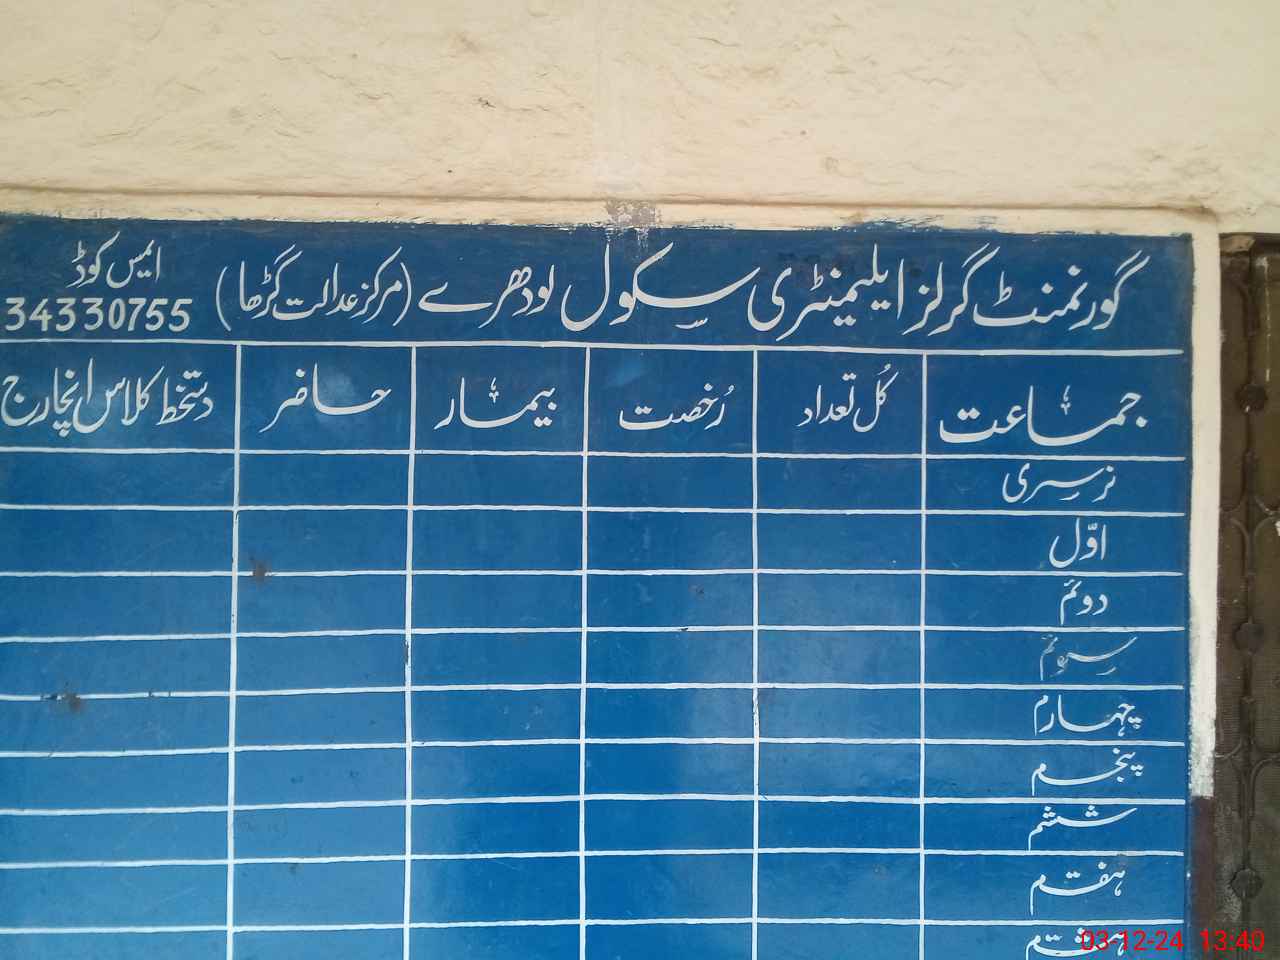 گورنمنٹ گرلز ایلیمنٹری سکول لودھرے (مرکز عدالت گڑھا)
ایمس کوڈ
34330755
جماعت کُل تعداد رُخصت بیمار حاضر دستخط کلاس انچارج
نرسری
اوّل
دوئم
سوئم
چہارم
پنجم
ششم
ہفتم
03-12-24 13:40